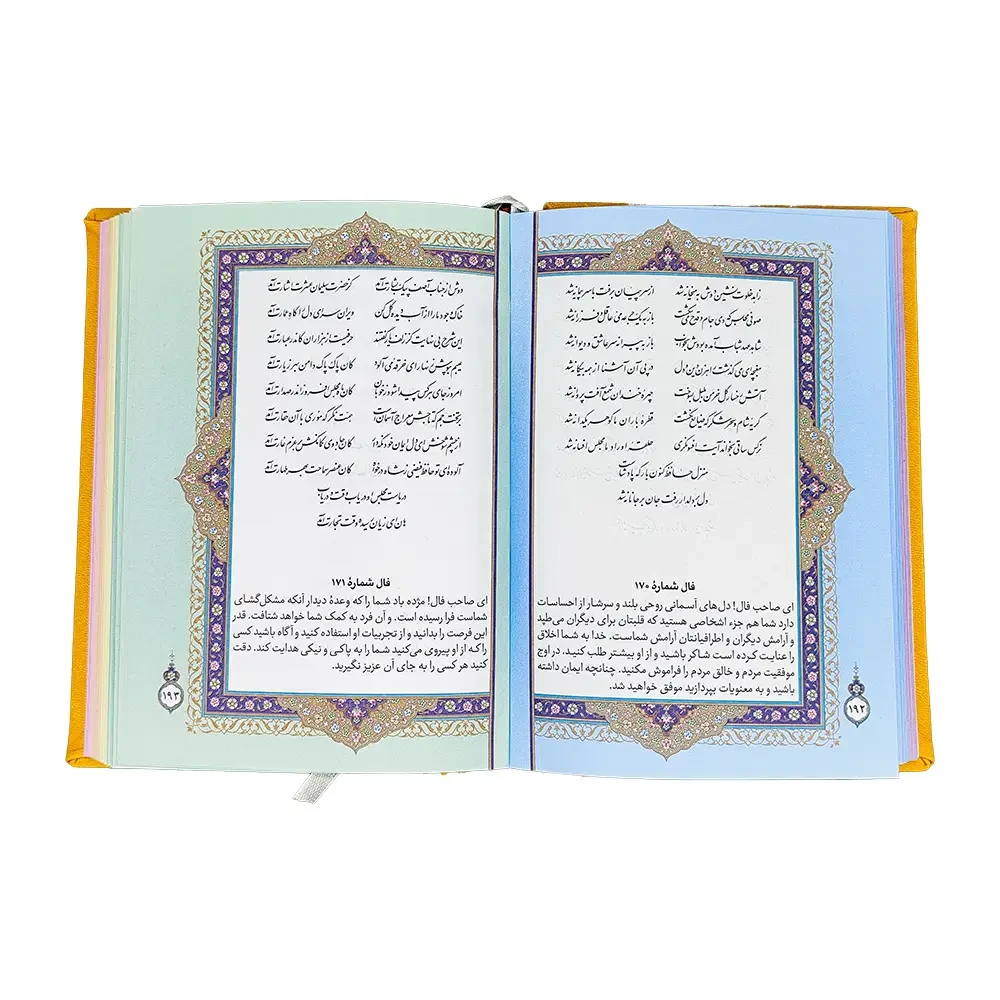 زاهد خلوت نشین دوش به میخانه شد از سر پیمان برفت با سر پیمانه شد
صوفی مجلس که دی جام و قدح می‌شکست باز به یک جرعه می عاقل و فرزانه شد
شاهد عهد شباب آمده بودش به خواب باز به پیرانه سر عاشق و دیوانه شد
مغبچه‌ای می‌گذشت راهزن دین و دل در پی آن آشنا از همه بیگانه شد
آتش رخسار گل خرمن بلبل بسوخت چهره خندان شمع آفت پروانه شد
گریه شام و سحر شکر که ضایع نگشت قطره باران ما گوهر یکدانه شد
نرگس ساقی بخواند آیت افسونگری حلقه اوراد ما مجلس افسانه شد
منزل حافظ کنون بارگه پادشاست
دل بر دلدار رفت جان بر جانانه شد
فال شمارهٔ ۱۷۰
ای صاحب فال! دل‌های آسمانی روحی بلند و سرشار از احساسات
دارد شما هم جزء اشخاصی هستید که قلبتان برای دیگران می‌طپد
و آرامش دیگران و اطرافیانتان آرامش شماست. خدا به شما اخلاق
را عنایت کرده است شاکر باشید و از او بیشتر طلب کنید. در اوج
موفقیت مردم و خالق مردم را فراموش مکنید. چنانچه ایمان داشته
باشید و به معنویات بپردازید موفق خواهید شد.
۱۹۲
دوش از جناب آصف پیک بشارت آمد کز حضرت سلیمان عشرت اشارت آمد
خاک وجود ما را از آب دیده گل کن ویران سرای دل را گاه عمارت آمد
این شرح بی نهایت کز زلف یار گفتند حرفیست از هزاران کاندر عبارت آمد
عیبم بپوش زنهار ای خرقه می آلود کان پاک پاک دامن بهر زیارت آمد
امروز جای هر کس پیدا شود ز خوبان کان ماه مجلس افروز اندر صدارت آمد
بر تخت جم که تاجش معراج آسمانست همت نگر که موری با آن حقارت آمد
از چشم شوخش ای دل ایمان خود نگه دار کان جادوی کمانکش بر عزم غارت آمد
آلوده‌ای تو حافظ فیضی ز شاه درخواه کان عنصر سماحت بهر طهارت آمد
دریاست مجلس او دریاب وقت و دریاب
هان ای زیان رسیده وقت تجارت آمد
فال شمارهٔ ۱۷۱
ای صاحب فال! مژده باد شما را که وعدهٔ دیدار آنکه مشکل‌گشای
شماست فرا رسیده است. و آن فرد به کمک شما خواهد شتافت. قدر
این فرصت را بدانید و از تجربیات او استفاده کنید و آگاه باشید کسی
را که از او پیروی می‌کنید شما را به پاکی و نیکی هدایت کند. دقت
کنید هر کسی را به جای آن عزیز نگیرید.
۱۹۳